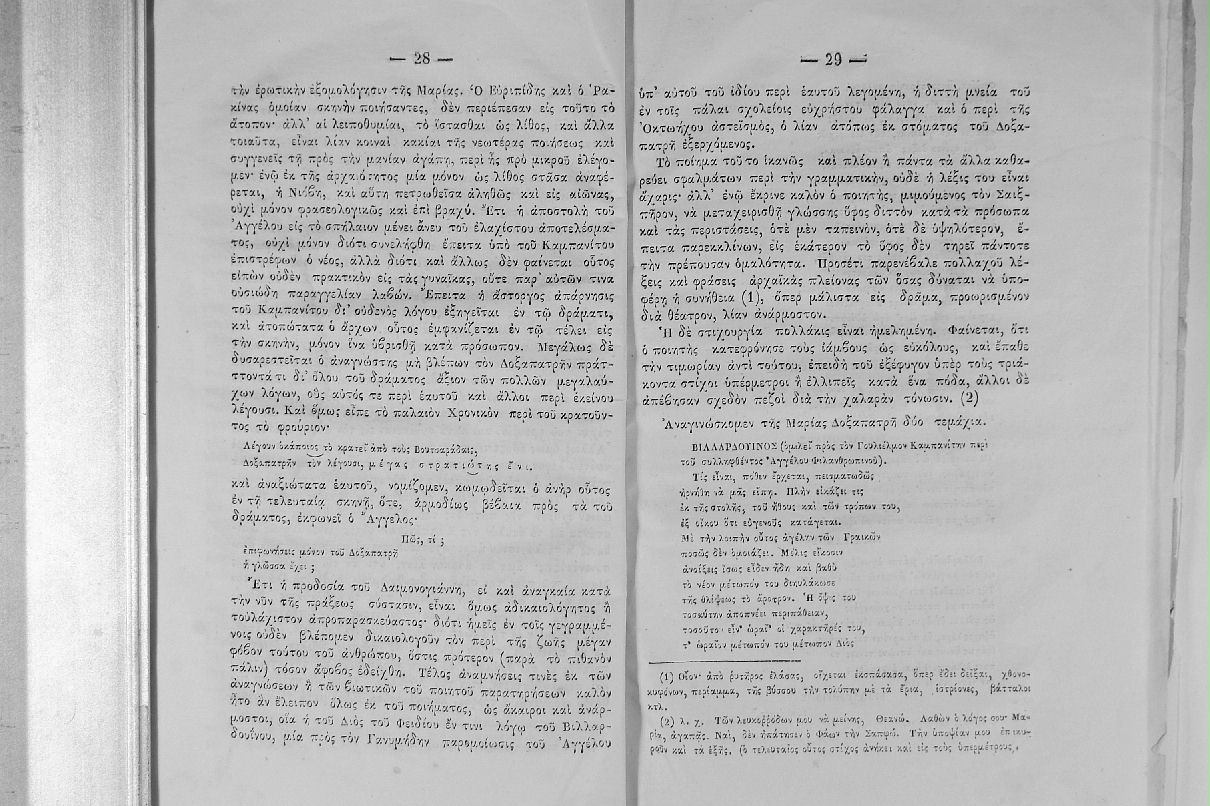 — 28 —
τὴν ἐρωτικὴν ἐξομολόγησιν τῆς Μαρίας. Ὁ Εὐριπίδης καὶ ὁ Ῥα-
κίνας ὁμοίαν σκηνὴν ποιήσαντες, δὲν περιέπεσαν εἰς τοῦτο τὸ
ἄτοπον· ἀλλ' αἱ λειποθυμίαι, τὸ ἵστασθαι ὡς λίθος, καὶ ἄλλα
τοιαῦτα, εἶναι λίαν κοιναὶ κακίαι τῆς νεωτέρας ποιήσεως καὶ
συγγενεῖς τῇ πρὸς τὴν μανίαν ἀγάπῃ, περὶ ἧς πρὸ μικροῦ ἐλέγο-
μεν· ἐνῷ ἐκ τῆς ἀρχαιότητος μία μόνον ὡς λίθος στᾶσα ἀναφέ-
ρεται, ἡ Νιόβη, καὶ αὕτη πετρωθεῖσα ἀληθῶς καὶ εἰς αἰῶνας,
οὐχὶ μόνον φρασεολογικῶς καὶ ἐπὶ βραχύ. Ἔτι ἡ ἀποστολὴ τοῦ
Ἀγγέλου εἰς τὸ σπήλαιον μένει ἄνευ τοῦ ἐλαχίστου ἀποτελέσμα-
τος, οὐχὶ μόνον διότι συνελήφθη ἔπειτα ὑπὸ τοῦ Καμπανίτου
ἐπιστρέφων ὁ νέος, ἀλλὰ διότι καὶ ἄλλως δὲν φαίνεται οὗτος
εἰπὼν οὐδὲν πρακτικὸν εἰς τὰς γυναῖκας, οὔτε παρ' αὐτῶν τινα
οὐσιώδη παραγγελίαν λαβών. Ἔπειτα ἡ ἄστοργος ἀπάρνησις
τοῦ Καμπανίτου δι' οὐδενὸς λόγου ἐξηγεῖται ἐν τῷ δράματι,
καὶ ἀτοπώτατα ὁ ἄρχων οὗτος ἐμφανίζεται ἐν τῷ τέλει εἰς
τὴν σκηνήν, μόνον ἵνα ὑβρισθῇ κατὰ πρόσωπον. Μεγάλως δὲ
δυσαρεστεῖται ὁ ἀναγνώστης μὴ βλέπων τὸν Δοξαπατρῆν πράτ-
τοντά τι δι' ὅλου τοῦ δράματος ἄξιον τῶν πολλῶν μεγαλαύ-
χων λόγων, οὓς αὐτός τε περὶ ἑαυτοῦ καὶ ἄλλοι περὶ ἐκείνου
λέγουσι. Καὶ ὅμως εἶπε τὸ παλαιὸν Χρονικὸν περὶ τοῦ κρατοῦν-
τος τὸ φρούριον·
Λέγουν ὁκάποιος τὸ κρατεῖ ἀπὸ τοὺς Βουτσαράδαις,
Δοξαπατρῆν τὸν λέγουσι, μέγας στρατιώτης ἔνι.
καὶ ἀναξιώτατα ἑαυτοῦ, νομίζομεν, κωμῳδεῖται ὁ ἀνὴρ οὗτος
ἐν τῇ τελευταίᾳ σκηνῇ, ὅτε, ἁρμοδίως βέβαια πρὸς τὰ τοῦ
δράματος, ἐκφωνεῖ ὁ Ἄγγελος·
Πῶς, τί ;
ἐπιφωνήσεις μόνον τοῦ Δοξαπατρῆ
ἡ γλῶσσα ἔχει ;
Ἔτι ἡ προδοσία τοῦ Λαιμονογιάννη, εἰ καὶ ἀναγκαία κατὰ
τὴν νῦν τῆς πράξεως σύστασιν, εἶναι ὅμως ἀδικαιολόγητος ἢ
τοὐλάχιστον ἀπροπαρασκεύαστος· διότι ἡμεῖς ἐν τοῖς γεγραμμέ-
νοις οὐδὲν βλέπομεν δικαιολογοῦν τὸν περὶ τῆς ζωῆς μέγαν
φόβον τούτου τοῦ ἀνθρώπου, ὅστις πρότερον (παρὰ τὸ πιθανὸν
πάλιν) τόσον ἄφοβος ἐδείχθη. Τέλος ἀναμνήσεις τινὲς ἐκ τῶν
ἀναγνώσεων ἢ τῶν βιωτικῶν τοῦ ποιητοῦ παρατηρήσεων καλὸν
ἦτο ἂν ἔλειπον ὅλως ἐκ τοῦ ποιήματος, ὡς ἄκαιροι καὶ ἀνάρ-
μοστοι, οἷα ἡ τοῦ Διὸς τοῦ Φειδίου ἔν τινι λόγῳ τοῦ Βιλλαρ-
δουίνου, μία πρὸς τὸν Γανυμήδην παρομοίωσις τοῦ Ἀγγέλου
— 29 —
ὑπ' αὐτοῦ τοῦ ἰδίου περὶ ἑαυτοῦ λεγομένη, ἡ διττὴ μνεία τοῦ
ἐν τοῖς πάλαι σχολείοις εὐχρήστου φάλαγγα καὶ ὁ περὶ τῆς
Ὀκτωήχου ἀστεϊσμός, ὁ λίαν ἀτόπως ἐκ στόματος τοῦ Δοξα-
πατρῆ ἐξερχόμενος.
Τὸ ποίημα τοῦτο ἱκανῶς καὶ πλέον ἢ πάντα τὰ ἄλλα καθα-
ρεύει σφαλμάτων περὶ τὴν γραμματικήν, οὐδὲ ἡ λέξις του εἶναι
ἄχαρις· ἀλλ' ἐνῷ ἔκρινε καλὸν ὁ ποιητής, μιμούμενος τὸν Σαιξ-
πῆρον, νὰ μεταχειρισθῇ γλώσσης ὕφος διττὸν κατὰ τὰ πρόσωπα
καὶ τὰς περιστάσεις, ὁτὲ μὲν ταπεινόν, ὁτὲ δὲ ὑψηλότερον, ἔ-
πειτα παρεκκλίνων, εἰς ἑκάτερον τὸ ὕφος δὲν τηρεῖ πάντοτε
τὴν πρέπουσαν ὁμαλότητα. Προσέτι παρενέβαλε πολλαχοῦ λέ-
ξεις καὶ φράσεις ἀρχαϊκὰς πλείονας τῶν ὅσας δύναται νὰ ὑπο-
φέρῃ ἡ συνήθεια (1), ὅπερ μάλιστα εἰς δρᾶμα, προωρισμένον
διὰ θέατρον, λίαν ἀνάρμοστον.
Ἡ δὲ στιχουργία πολλάκις εἶναι ἠμελημένη. Φαίνεται, ὅτι
ὁ ποιητὴς κατεφρόνησε τοὺς ἰάμβους ὡς εὐκόλους, καὶ ἔπαθε
τὴν τιμωρίαν ἀντὶ τούτου, ἐπειδὴ τοῦ ἐξέφυγον ὑπὲρ τοὺς τριά-
κοντα στίχοι ὑπέρμετροι ἢ ἐλλιπεῖς κατὰ ἕνα πόδα, ἄλλοι δὲ
ἀπέβησαν σχεδὸν πεζοὶ διὰ τὴν χαλαρὰν τόνωσιν. (2)
Ἀναγινώσκομεν τῆς Μαρίας Δοξαπατρῆ δύο τεμάχια.
ΒΙΛΛΑΡΔΟΥΙΝΟΣ (ὁμιλεῖ πρὸς τὸν Γουλιέλμον Καμπανίτην περὶ
τοῦ συλληφθέντος Ἀγγέλου Φιλανθρωπινοῦ).
Τίς εἶναι, πόθεν ἔρχεται, πεισματωδῶς
ἠρνήθη νὰ μᾶς εἴπῃ. Πλὴν εἰκάζει τις
ἐκ τῆς στολῆς, τοῦ ἤθους καὶ τῶν τρόπων του,
ἐξ οἴκου ὅτι εὐγενοῦς κατάγεται.
Μὲ τὴν λοιπὴν οὗτος ἀγέλην τῶν Γραικῶν
ποσῶς δὲν ὁμοιάζει. Μόλις εἴκοσιν
ἀνοίξεις ἴσως εἶδεν ἤδη καὶ βαθὺ
τὸ νέον μέτωπόν του διηυλάκωσε
τῆς θλίψεως τὸ ἄροτρον. Ἡ ὄψις του
τοσαύτην ἀποπνέει περιπάθειαν,
τοσοῦτο· εἶν' ὡραῖ' οἱ χαρακτῆρές του,
τ' ὡραῖον μέτωπόν του μέτωπον Διὸς
(1) Οἷον· ἀπὸ ῥυτῆρος ἐλάσας, οἴχεται ἐκσπάσασα, ὅπερ ἔδει δεῖξαι, χθονο-
κυφώνων, περίαμμα, τῆς βύσσου τὴν τολύπην μὲ τὰ ἔρια, ἱστρίονες, βάτταλοι
κτλ.
(2) λ. χ. Τῶν λευκοῤῥόδων μου νὰ μείνῃς, Θεανώ. Λαθὼν ὁ λόγος σου· Μα-
ρία, ἀγαπᾷς. Ναί, δὲν ἠπάτησεν ὁ Φάων τὴν Σαπφώ. Τὴν ὑποψίαν μου ἐπικυ-
ροῦν καὶ τὰ ἑξῆς. (ὁ τελευταῖος οὗτος στίχος ἀνήκει καὶ εἰς τοὺς ὑπερμέτρους.